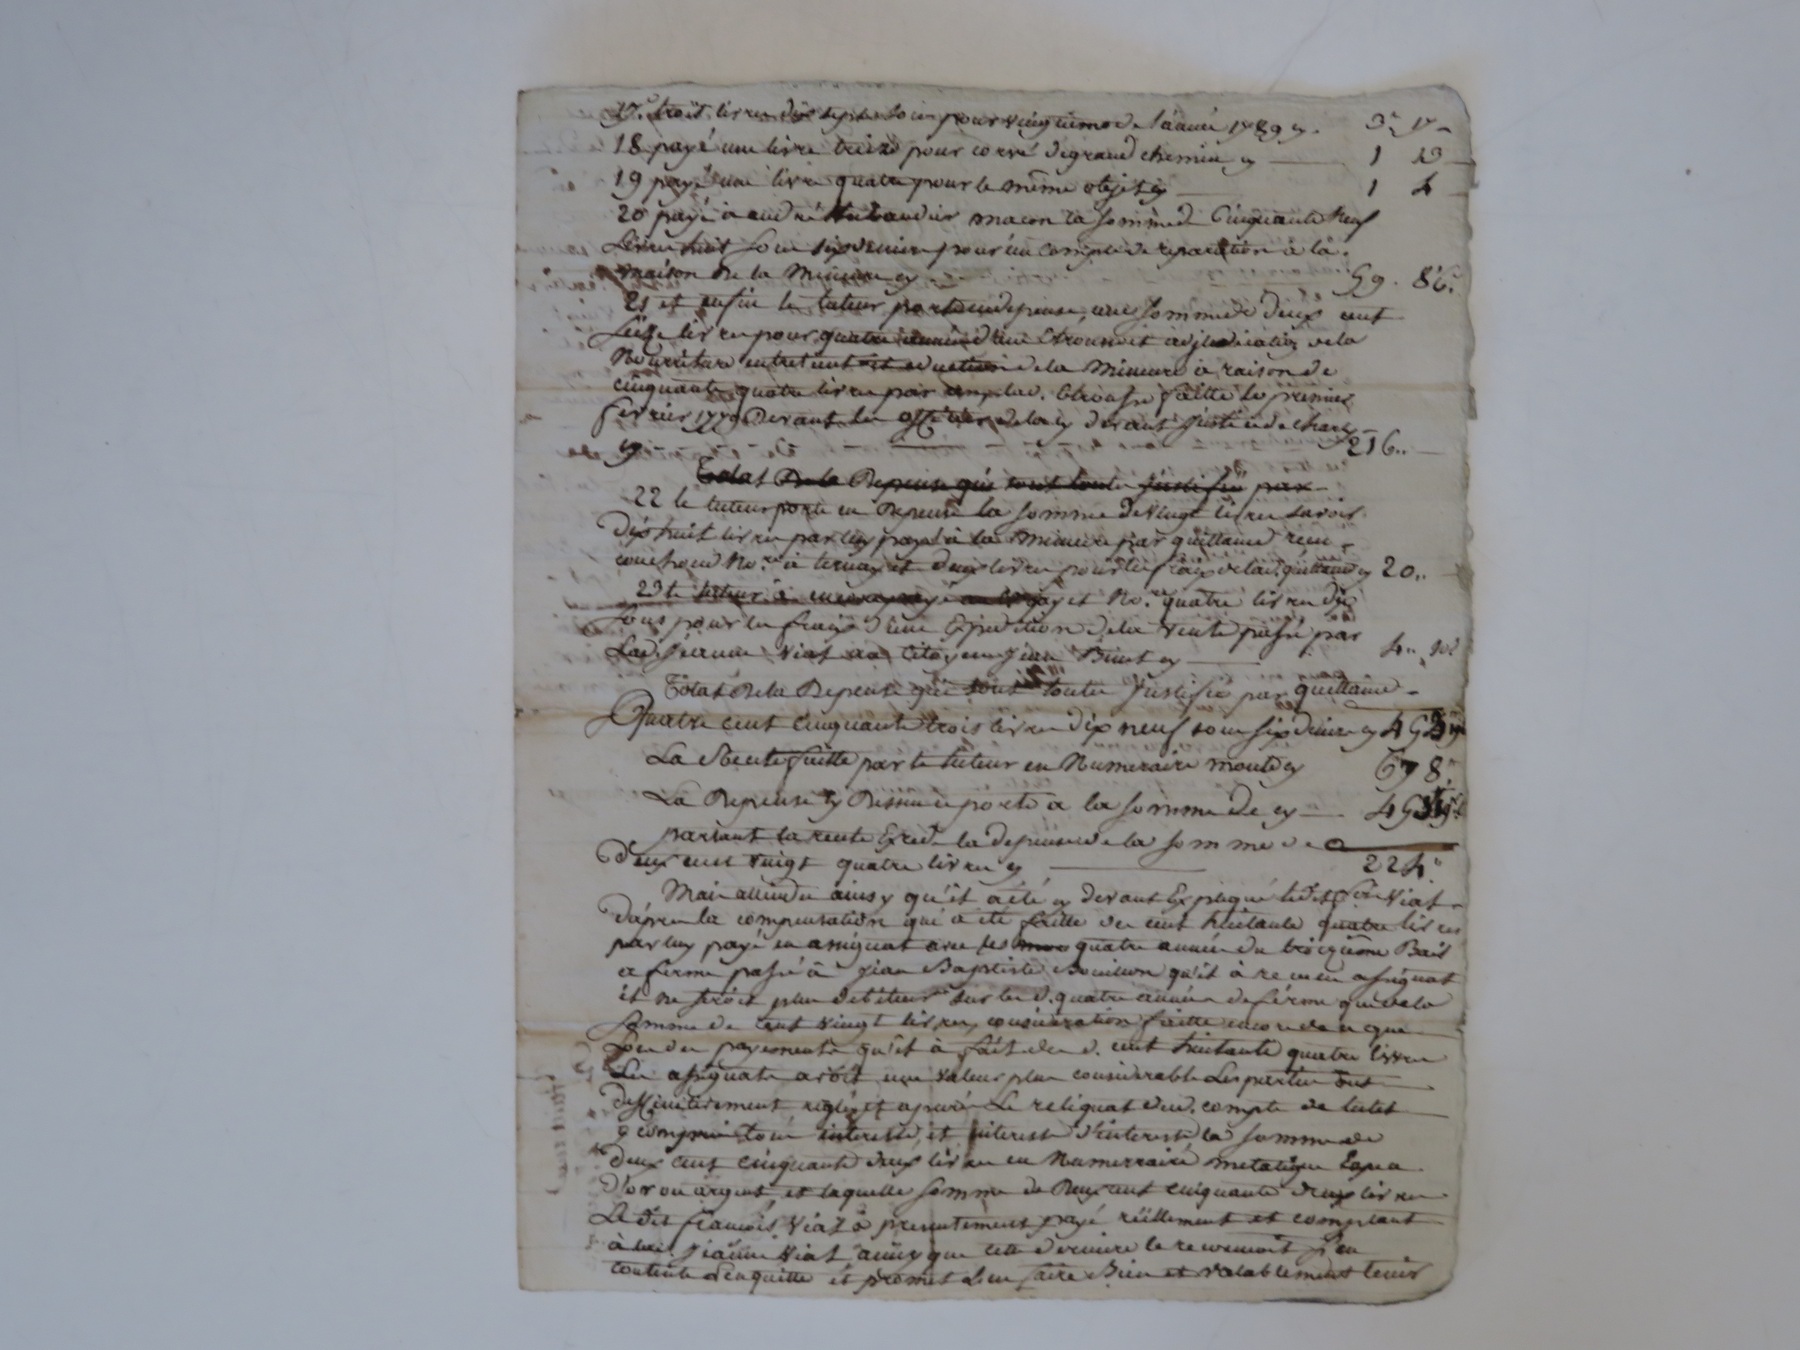 17. trois livres dix sept sous pour vingtieme de l'année 1789 cy. 3" 17
18 payé une livre treize pour corvé de grand chemin cy 1 13
19 payé une livre quatre pour le même objet cy 1 4
20 payé à andré macon la somme de Cinquante Neuf
Livres huit sous six deniers pour un compte de reparation à la
maison de la Mineure cy 59. 8 6.
21 et enfin le tuteur porte en depense une somme de deux cent
seize livres pour quatre année d'une Etrousse et adjudication de la
Nourriture entretient et education de la Mineure à raison de
cinquante quatre livres par an lad. Etrousse faitte le premier
fevrier 1779 Devant les officiers de la cy devant justice de
cy 216..
Total De la Depense qui sont toutes justifié par
22 le tuteur porte en Depense la somme de vingt livres savoir
Dix huit livres par luy payé à la Mineure par quittance recu
Nore. à ternay et deux livres pour les frais de lad. quittance cy 20..
23 le tuteur à encore payé et Nore. quatre livres dix
sous pour les frais d'une Expedition de la Vente passé par
Lad. jeanne Viat au Citoyen jean cy 4.. 10
Total De la Depense qui sont toutes justifié par quittance
Quatre cent cinquante trois livres dix neuf sous six deniers cy 453 19
La Recette faitte par le tuteur en Numeraire monte cy 678"
La Depense cy Dessus se porte à la somme de cy 453 19
partant la recette Exede la depense de la somme de
Deux cent vingt quatre livres cy 224"
Mais attendu ainsy qu'il a été cy devant Expliqué ledit fois Viat
D'apres la compensation qui a été faitte de cent huitante quatre livres
par luy payé en assignat avec les quatre année du troizieme Bail
a ferme passé à jean Baptiste Bouillon qu'il à recu en assignat
il ne seroit plus debiteur sur les d. quatre année de ferme que de la
somme de cent vingt livres, consideration faitte encore de ce que
Lors des payements qu'il à fait des d. cent huitante quatre livres
Les assignats avoit une valeur plus considerable Les parties ont
Deffinitivement reglé et apuré Le reliquat dud. compte de tutel
y compris tous interests, et interests d'interests la somme de
Deux cent cinquante deux livres en Numerraire metalique Espece
D'or ou argent, et laquelle somme de Deux cent cinquante deux livres
Le dit françois Viat à presentement payé réellement et comptant
à lad. jeanne Viat ainsy que cette derniere le reconnoit s'en
contente L'en quitte et promet L'en faire Bien et valablement tenir